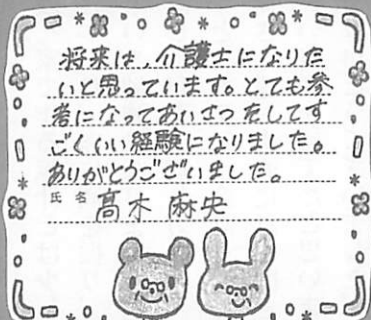 将来は、介護士になりた
いと思っています。とても参
考になってあいさつをしてす
ごくいい経験になりました。
ありがとうございました。
氏名 高木 麻央